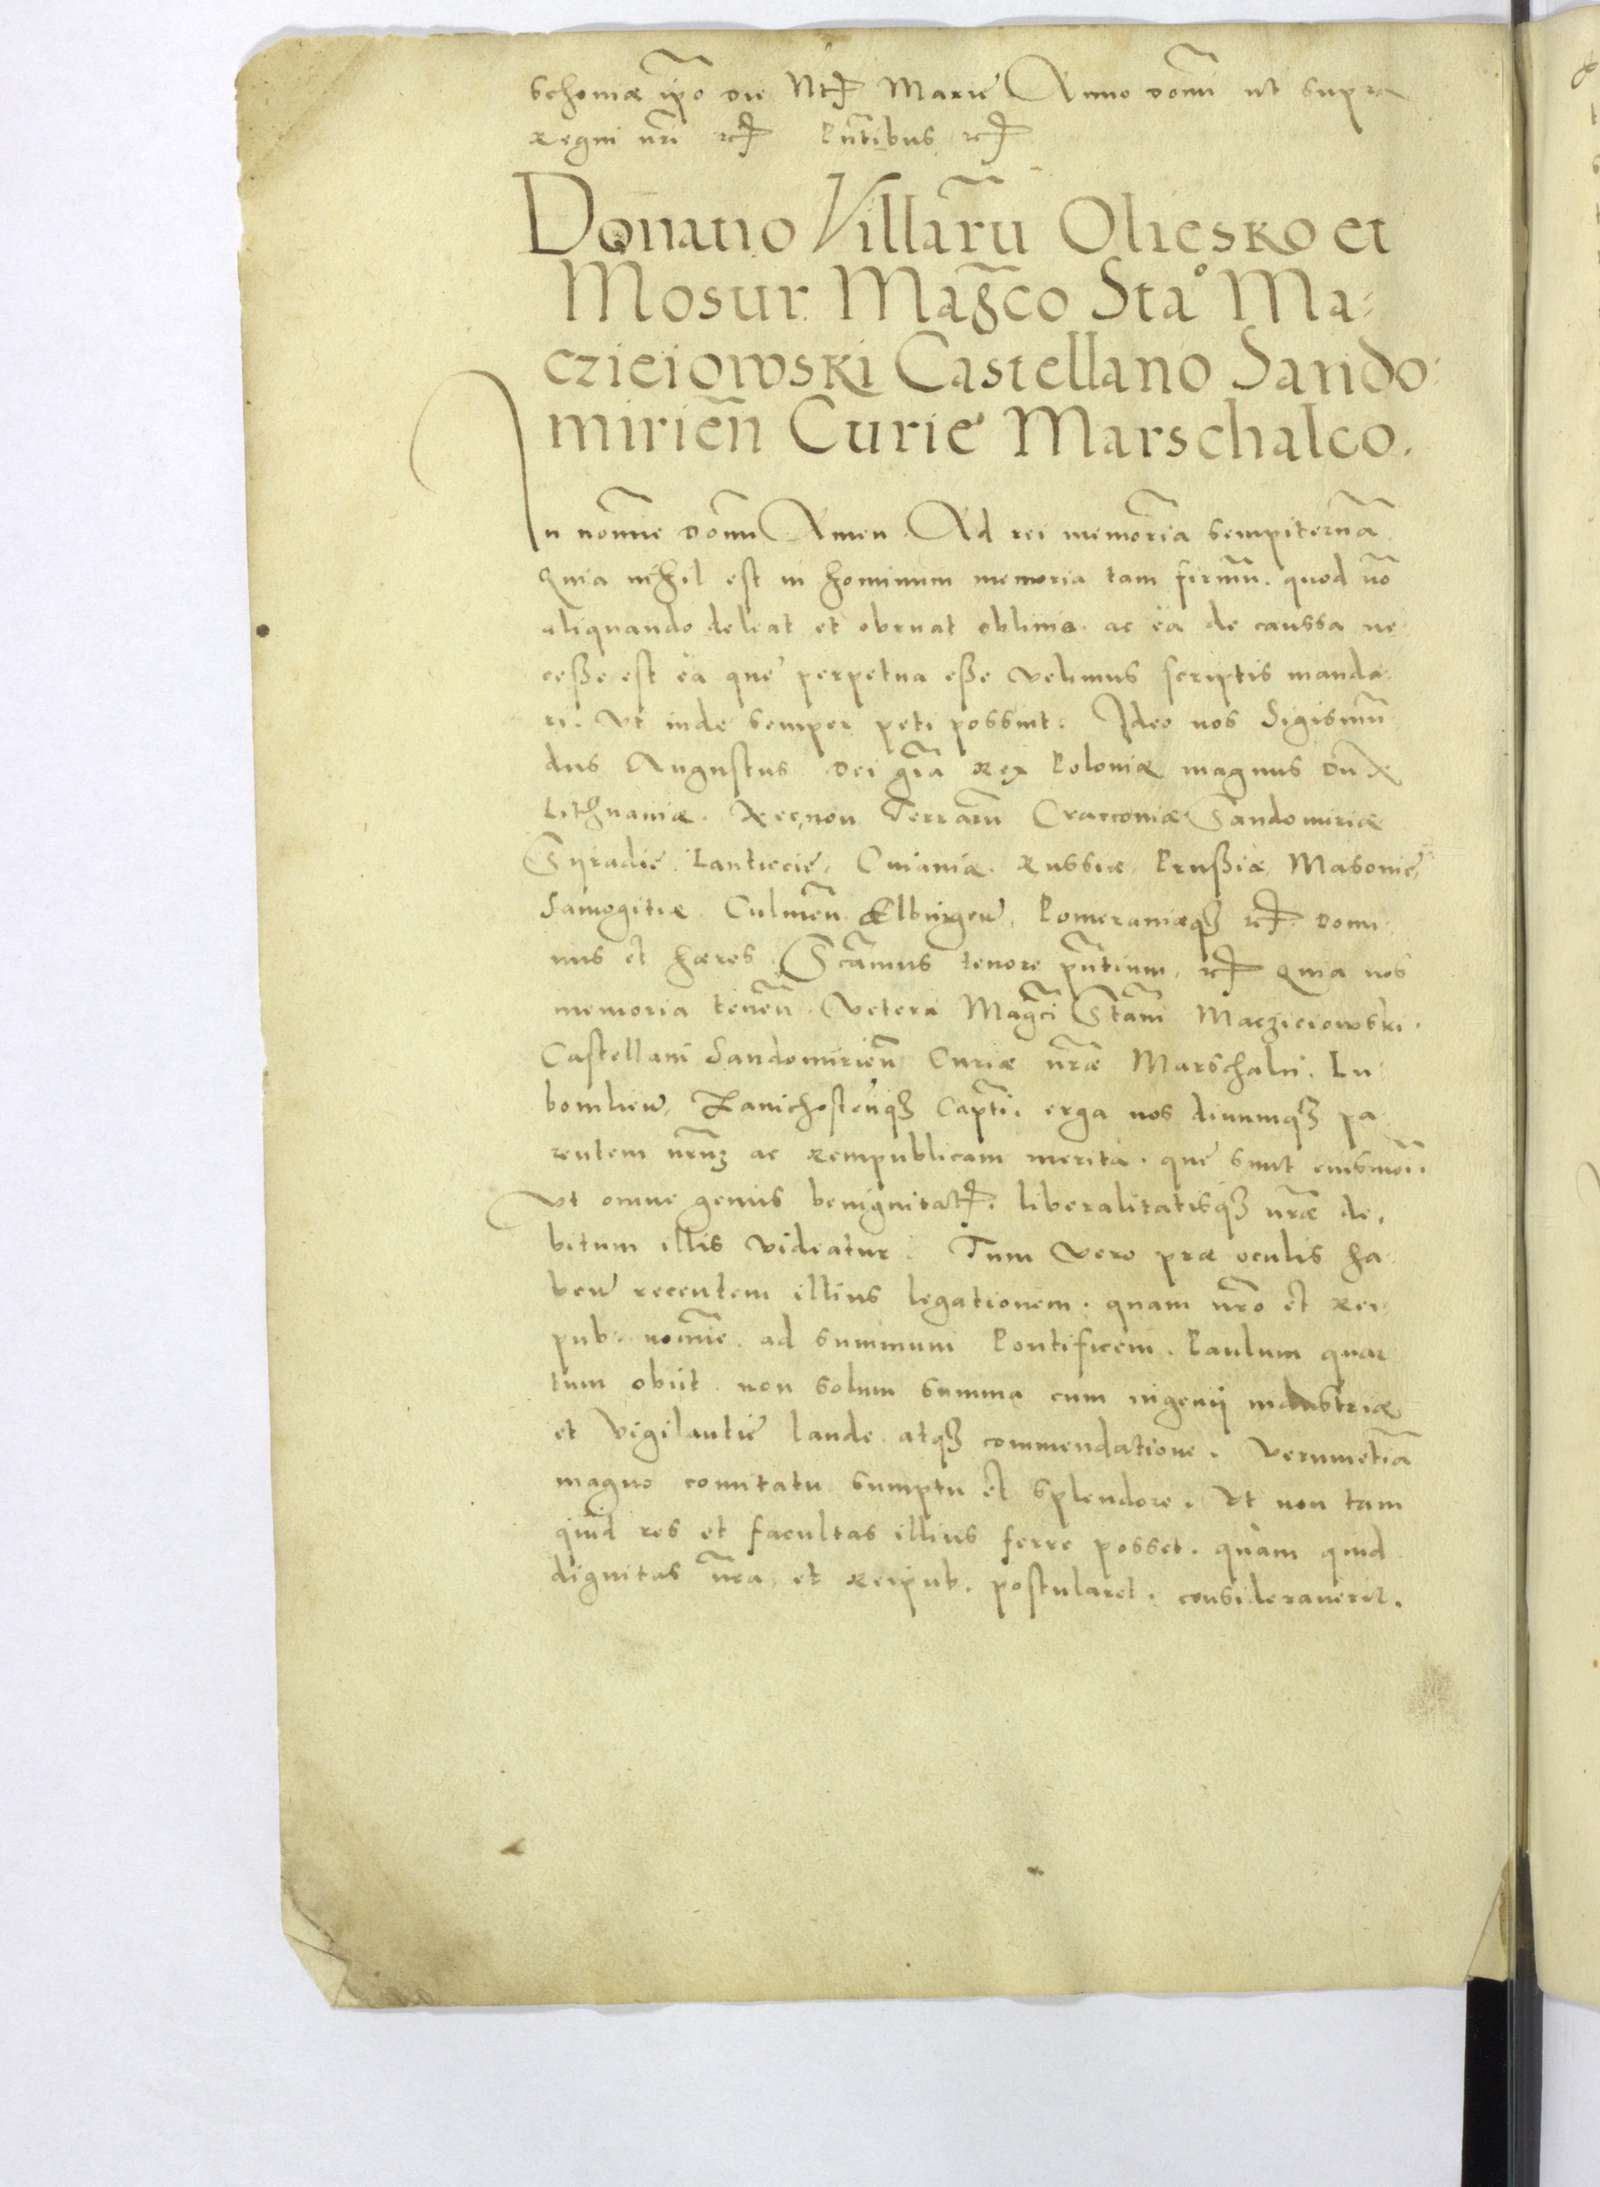 schoviæ ipo die Nts Marie Anno domi ut supra
Regni nri etc Pntibus etc
Donatio Villarũ Oliesko et
Mosur. Magco Sta° Ma-
czieiowski Castellano Sando-
miriēn Curie Marschalco.
In nomīe domī Amen. Ad rei memoriā sempiternā.
Quia nihil est in hominum memoria tam firmū. quod nō
aliquando deleat et obruat oblivio. ac ea de caussa ne
ceße est ea que perpetua eße velimus scriptis manda
ri. Vt inde semper peti possint. Ideo nos Sigismū
dus Augustus Dei gr̄a Rex Poloniæ magnus Dux
Lithuaniæ. Necnon Terrarū Cracoviæ Sandomiriæ
Syradie Lanticie, Cuiaviæ. Russiæ, Prußiæ, Masovie,
Samogitiæ. Culmeñ. Elbingeñ, Pomeraniæqʒ etc. domi
nus et hæres. Scamus tenore pn̄tium, etc Quia nos
memoria teneñ. Vetera Magci Stani Maczieiowski.
Castellani Sandomirieñ Curiæ nr̄æ Marschalci. Lu
bomlieñ, Zavichosteñqʒ Capti. erga nos divumqʒ pa
rentem nrūʒ ac Rempublicam merita. que sunt eiusmōi.
Vt omne genus benignitatis. liberalitatisqʒ nr̄æ de,
bitum illis videatur. Tum vero præ oculis ha
beñ recentem illius legationem. quam nr̄o et Rei
pub. nomīe. ad summum Pontificem. Paulum quar
tum obiit. non solum summa cum ingenij industriæ
et vigilantie laude. atqʒ commendatione. verumetiā
magno comitatu sumptu et splendore. Vt non tam
quid res et facultas illius ferre posset. quam quid
dignitas nr̄a, et Reipub. postularet. consideraverit.